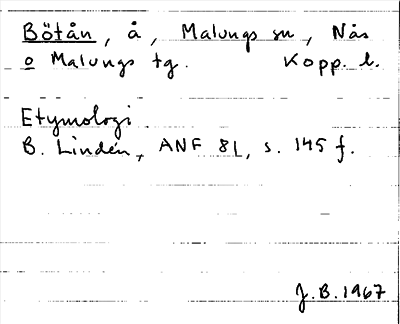 Bötån, å, Malungs sn, Nås
o Malungs tg. Kopp. l.
Etymologi
B. Lindén, ANF 81, s. 145 f.
J.B. 1967